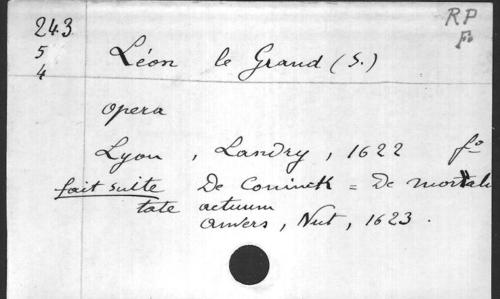 243
5
4
RP
Fo
Léon le Grand (S.)
opera
Lyon, Landry, 1622 fo
fait suite De Coninck = De mortali
tate actuum
anvers, Nut, 1623.